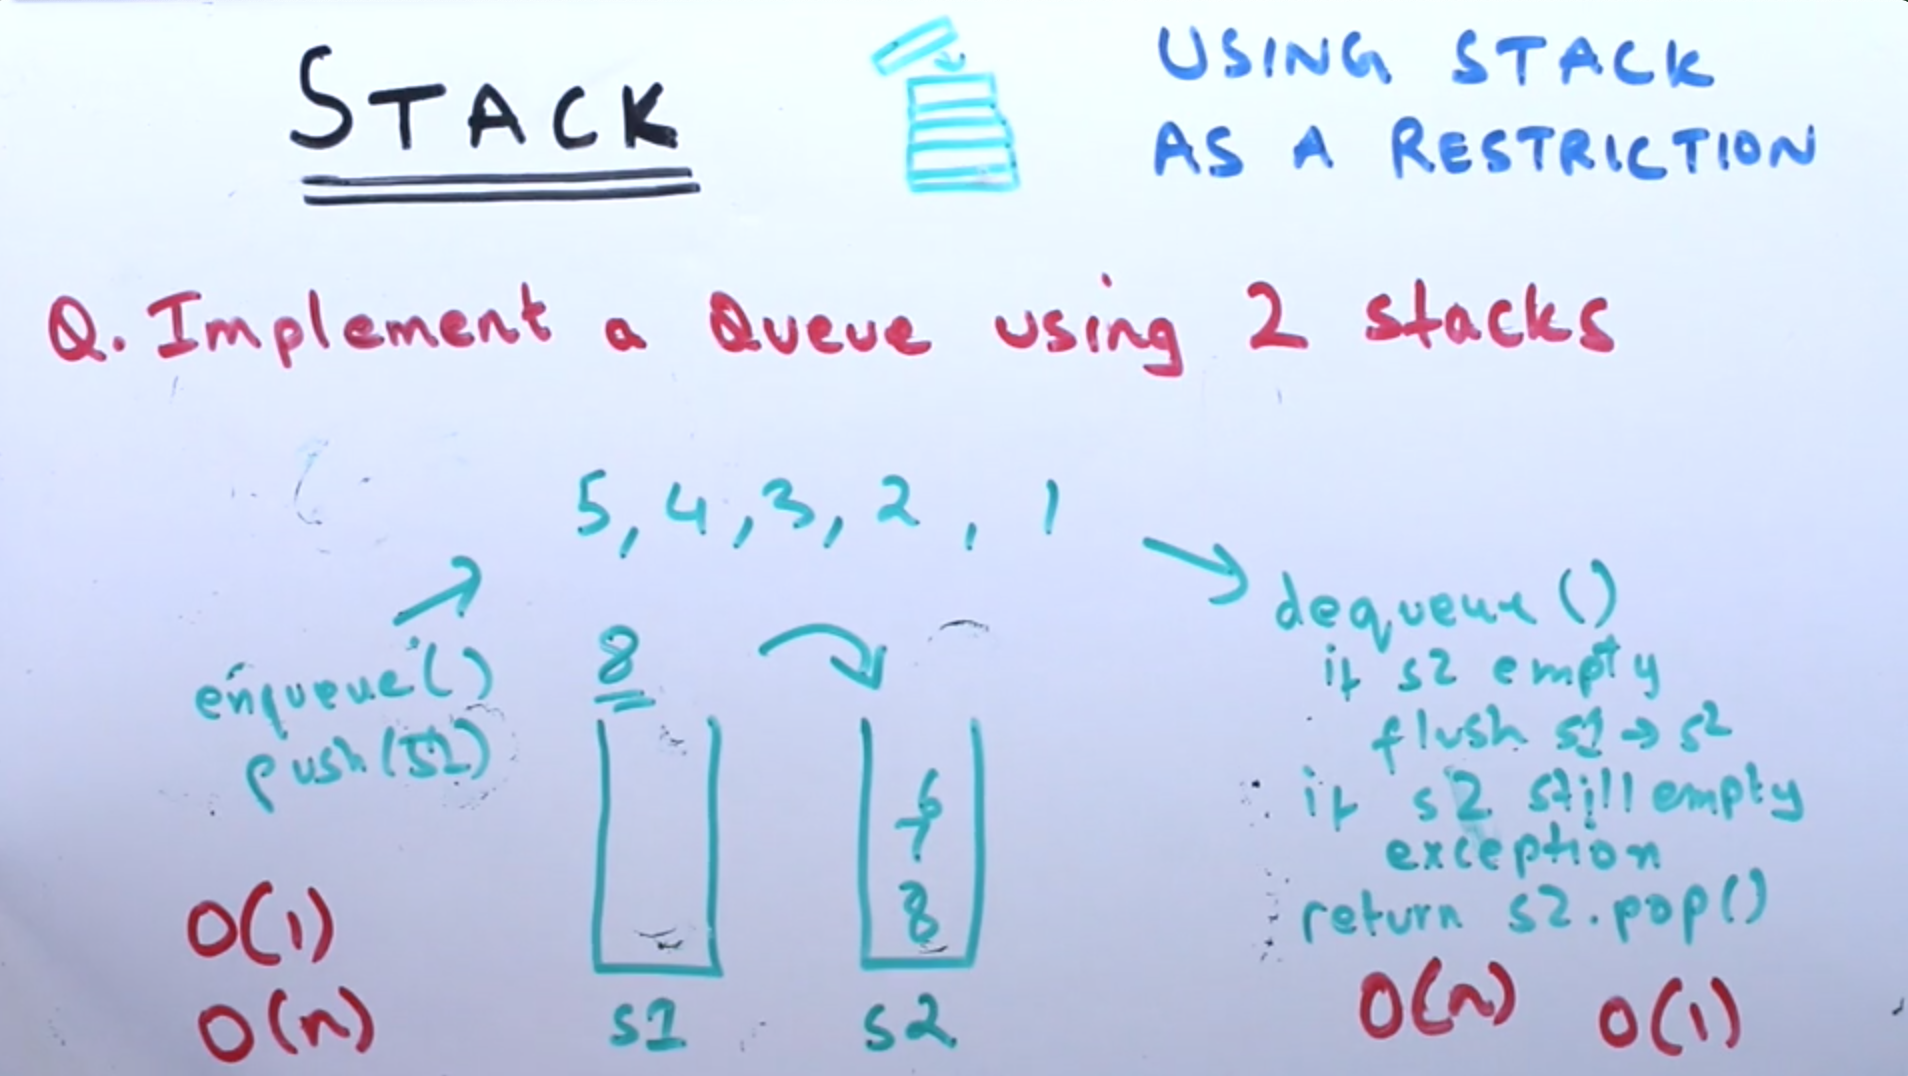 STACK
USING STACK
AS A RESTRICTION
Q. Implement a Queue using 2 stacks
5, 4, 3, 2, 1
enqueue()
push(S1)
8
dequeue()
if s2 empty
flush s1→s2
if s2 still empty
exception
return s2.pop()
6
7
8
s1
s2
O(1)
O(n)
O(n) O(1)